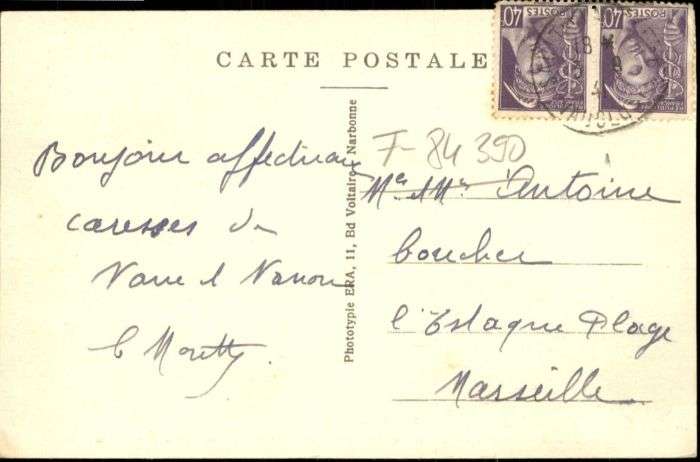 CARTE POSTALE
40
POSTES
40
POSTES
VAUCLUSE
F-84 390
Bonjour affectueux
caresses de
et Nanou
Moretty.
Phototypie ERA, 11, Bd Voltaire, Narbonne
Antoine
boucher
l'Estaque Plage
Marseille